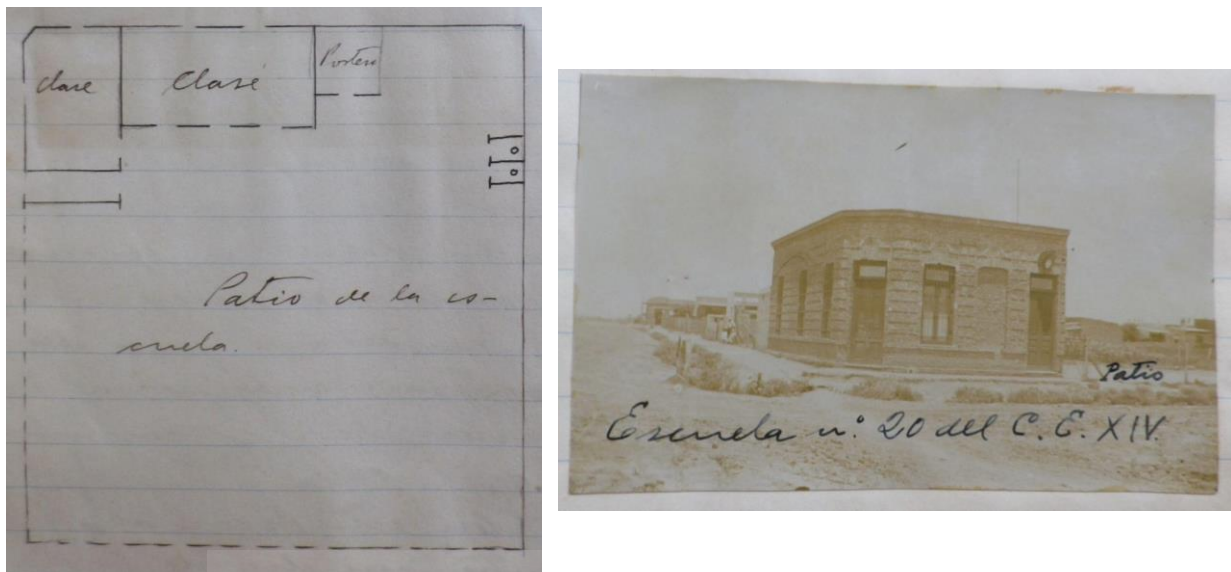 clase
Clase
Portero
Patio de la es-
cuela.
Patio
Escuela n.º 20 del C. E. XIV.